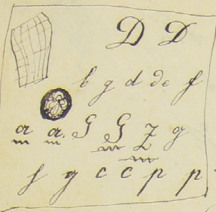 D D
b g d de f
a a. G G Z g
f g c c p p